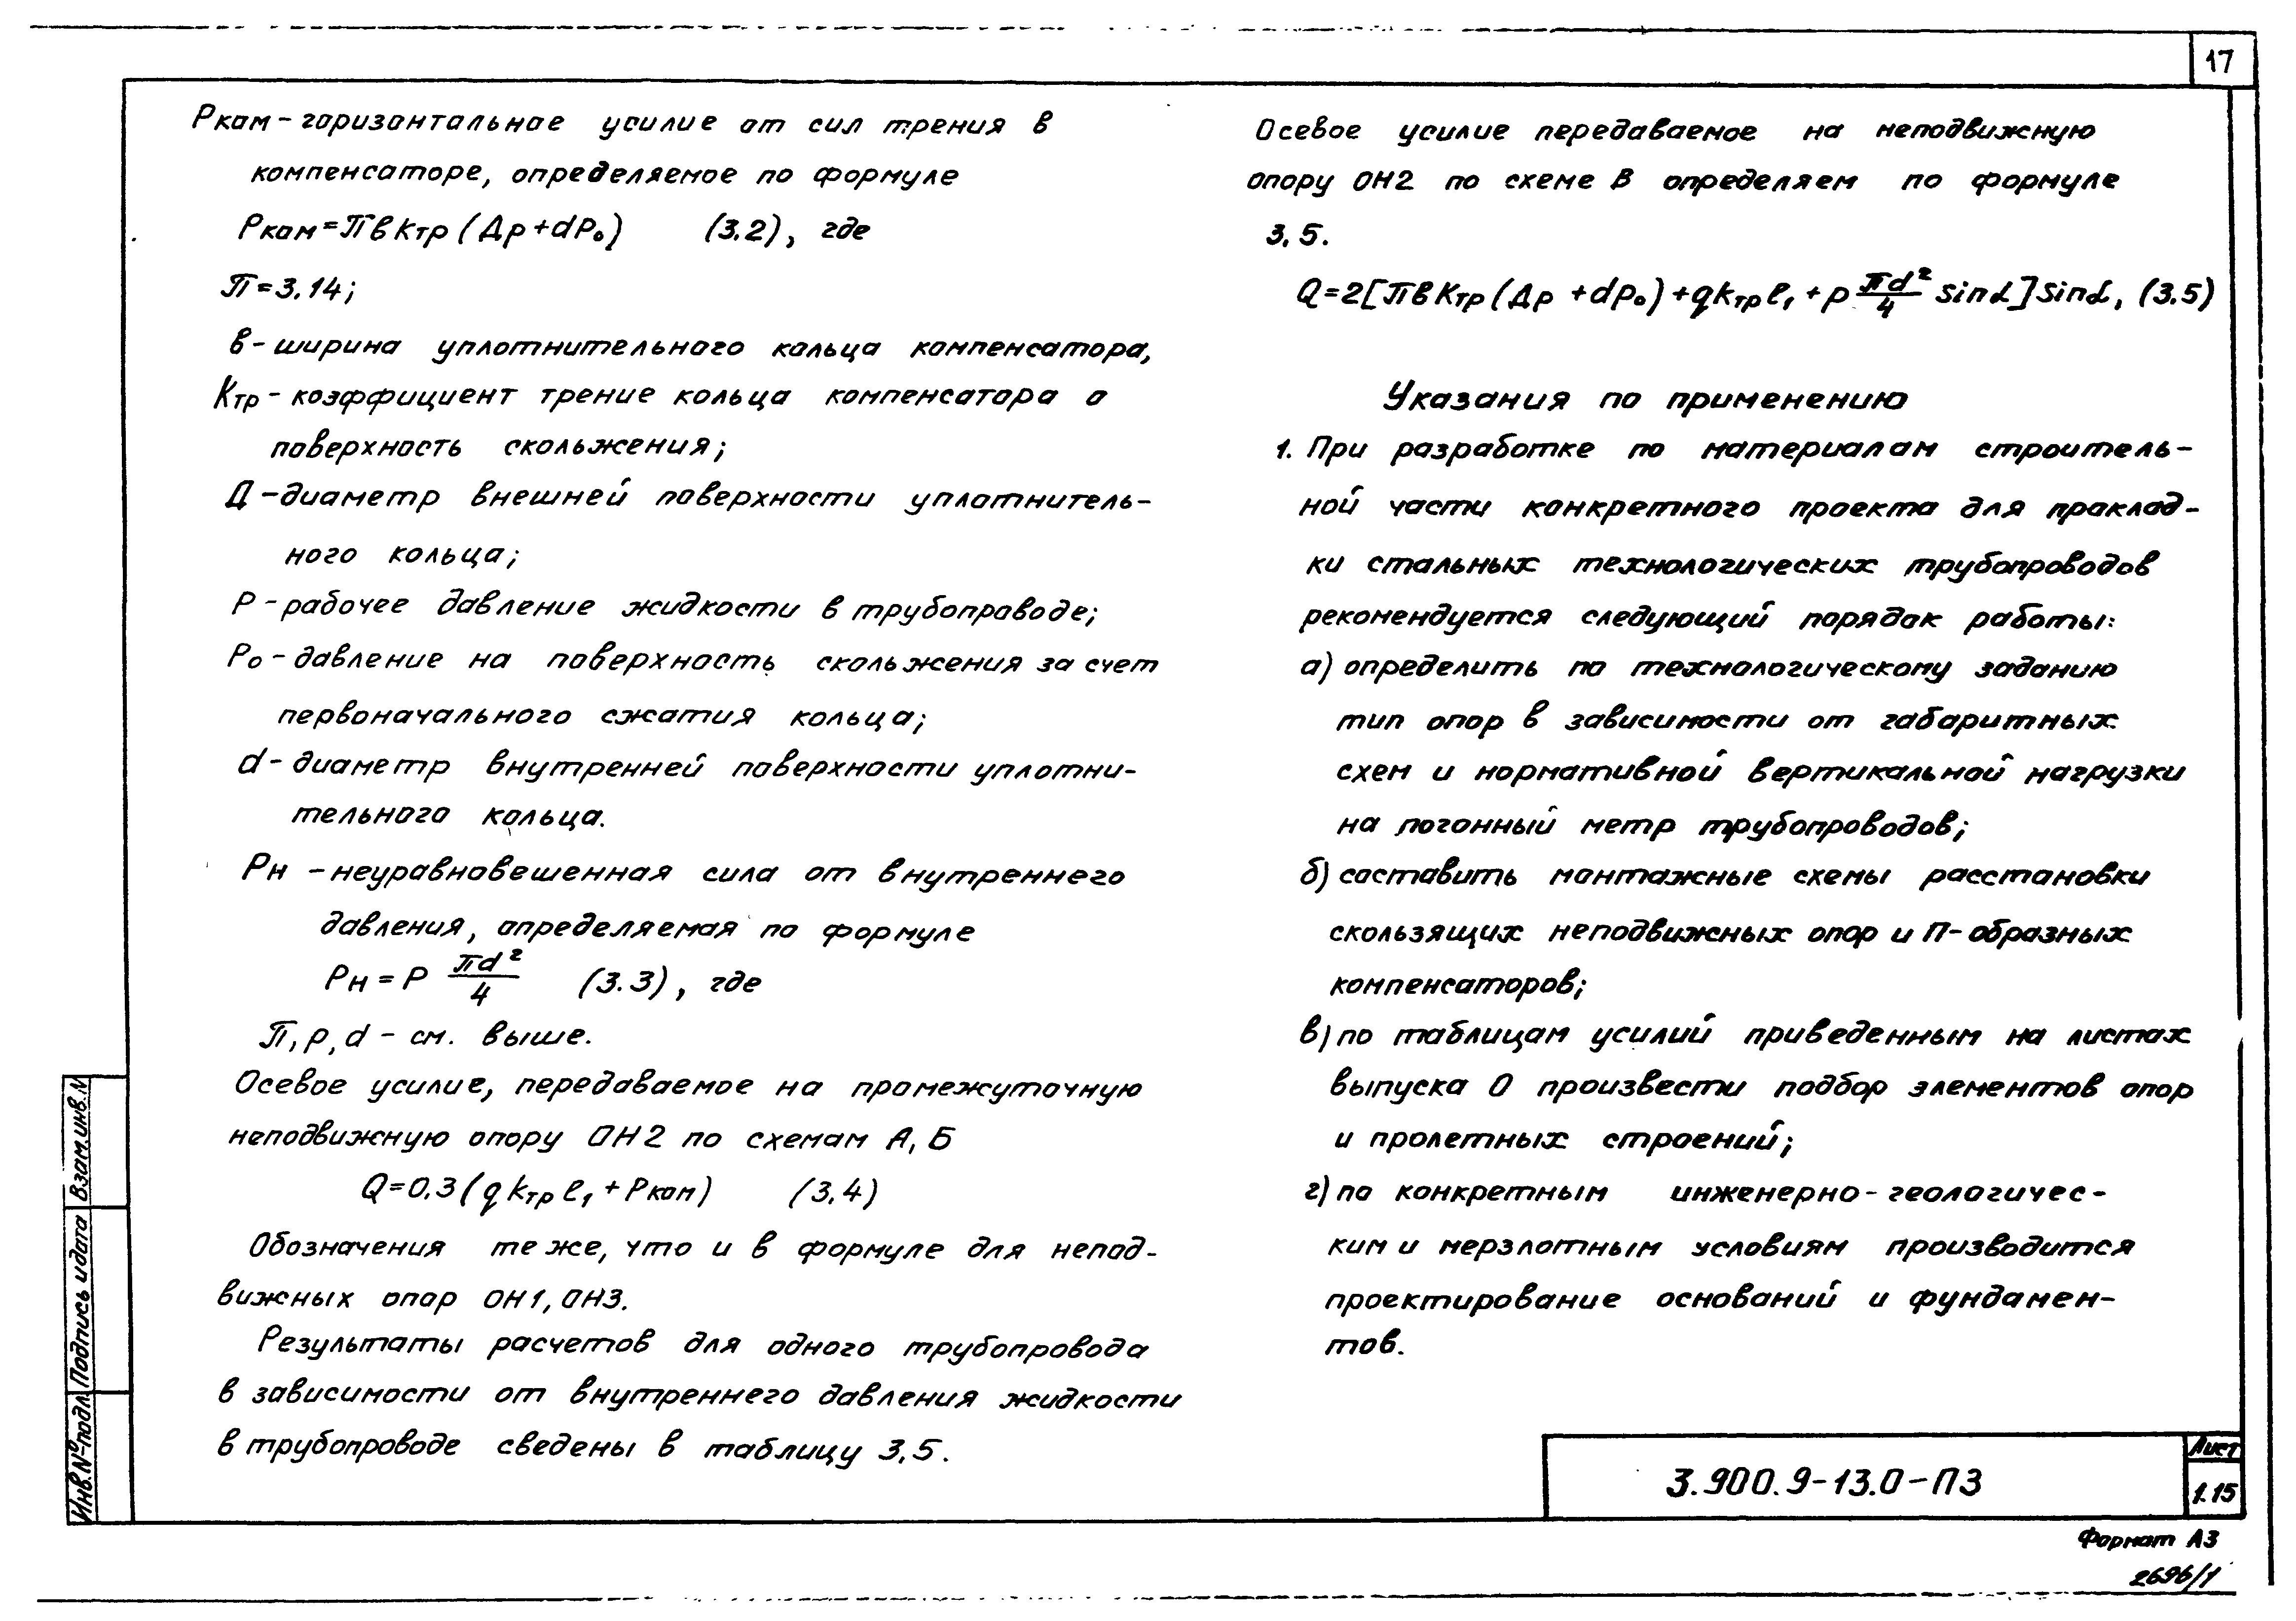 17
Ркам – горизонтальное усилие от сил трения в
компенсаторе, определяемое по формуле
Ркам = П в Ктр (Др + dР₀) (3.2), где
П = 3.14;
в – ширина уплотнительного кольца компенсатора,
Ктр – коэффициент трение кольца компенсатора о
поверхность скольжения;
Д – диаметр внешней поверхности уплотнитель-
ного кольца;
Р – рабочее давление жидкости в трубопроводе;
Р₀ – давление на поверхность скольжения за счет
первоначального сжатия кольца;
d – диаметр внутренней поверхности уплотни-
тельного кольца.
Рн – неуравновешенная сила от внутреннего
давления, определяемая по формуле
Рн = Р πd²/4 (3.3), где
П, р, d – см. выше.
Осевое усилие, передаваемое на промежуточную
неподвижную опору ОН2 по схемам А, Б
Q = 0,3 (q kтр ℓ₁ + Ркам) (3,4)
Обозначения те же, что и в формуле для непод-
вижных опор ОН1, ОН3.
Результаты расчетов для одного трубопровода
в зависимости от внутреннего давления жидкости
в трубопроводе сведены в таблицу 3,5.
Осевое усилие передаваемое на неподвижную
опору ОН2 по схеме В определяем по формуле
3,5.
Q = 2[П в Ктр (Др + dр₀) + qkтр ℓ₁ + р πd²/4 sinα] sinα, (3.5)
Указания по применению
1. При разработке по материалам строитель-
ной части конкретного проекта для проклад-
ки стальных технологических трубопроводов
рекомендуется следующий порядок работы:
а) определить по технологическому заданию
тип опор в зависимости от габаритных
схем и нормативной вертикальной нагрузки
на погонный метр трубопроводов;
б) составить монтажные схемы расстановки
скользящих неподвижных опор и П-образных
компенсаторов;
в) по таблицам усилий приведенным на листах
выпуска 0 произвести подбор элементов опор
и пролетных строений;
г) по конкретным инженерно-геологичес-
ким и мерзлотным условиям производится
проектирование оснований и фундамен-
тов.
Инв.№подл. Подпись и дата Взам.инв.N
3.900.9-13.0-ПЗ
Лист
1.15
Формат А3
2696/1